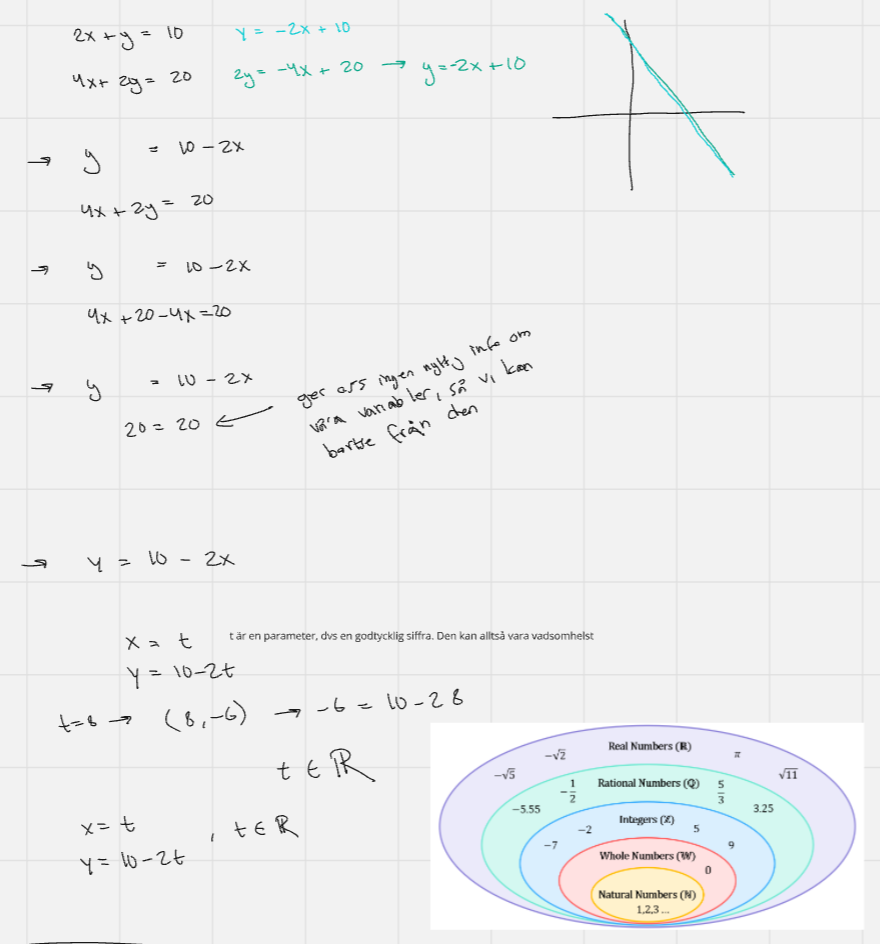 2x + y = 10 y = -2x + 10
4x + 2y = 20 2y = -4x + 20 → y = -2x + 10
→ y = 10 - 2x
4x + 2y = 20
→ y = 10 - 2x
4x + 20 - 4x = 20
→ y = 10 - 2x
20 = 20 ←
ger oss ingen nyttig info om
våra variabler, så vi kan
bortse från den
→ y = 10 - 2x
x = t t är en parameter, dvs en godtycklig siffra. Den kan alltså vara vadsomhelst
y = 10 - 2t
t=8 → (8, -6) → -6 = 10 - 2 8
t ∈ ℝ
x = t
y = 10 - 2t , t ∈ ℝ
Real Numbers (ℝ)
-√2 π
-√5 √11
Rational Numbers (ℚ)
-1/2 5/3
-5.55 3.25
Integers (ℤ)
-2 5
-7 9
Whole Numbers (𝕎)
0
Natural Numbers (ℕ)
1,2,3 ...